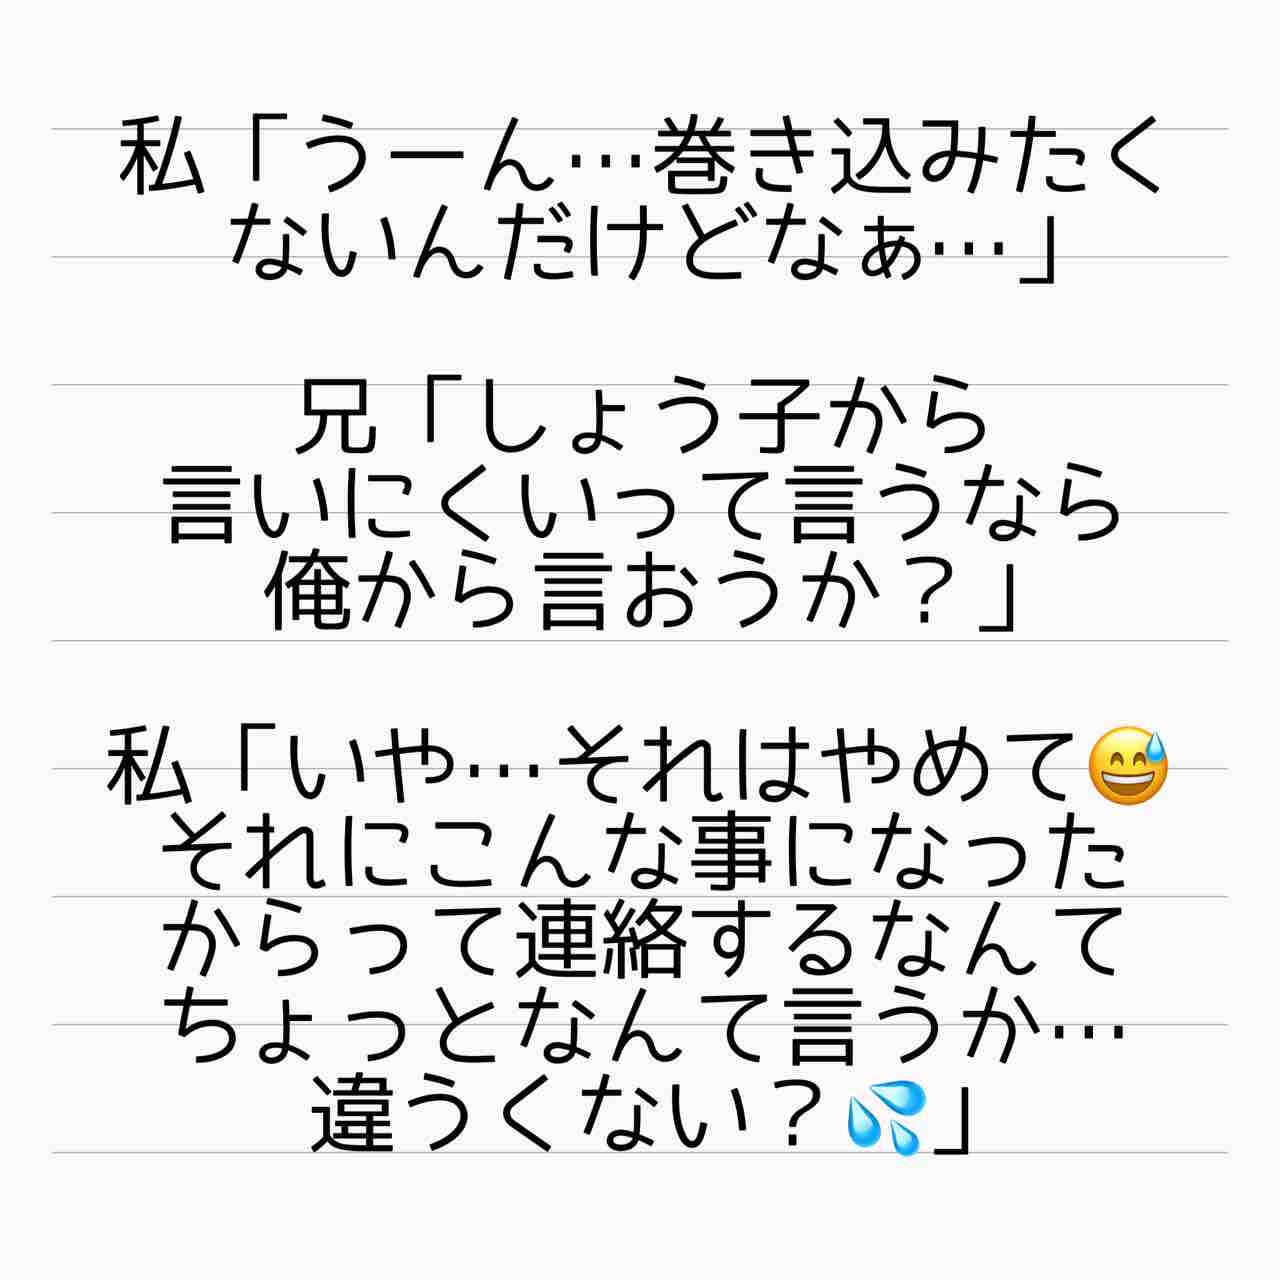 私「うーん…巻き込みたく
ないんだけどなぁ…」
兄「しょう子から
言いにくいって言うなら
俺から言おうか？」
私「いや…それはやめて😅
それにこんな事になった
からって連絡するなんて
ちょっとなんて言うか…
違うくない？💦」